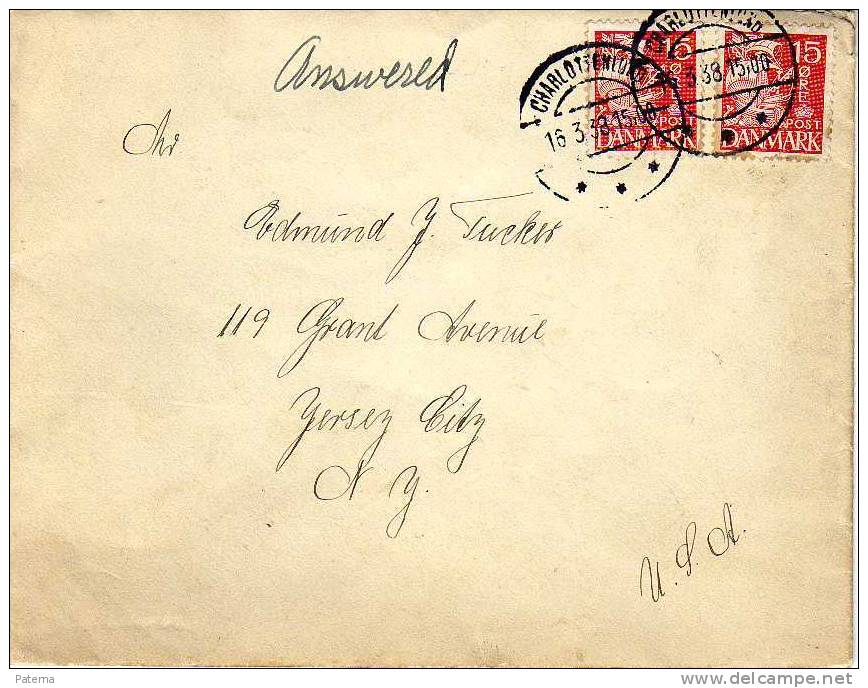 Answered
15 ØRE POST DANMARK
15 ØRE POST DANMARK
CHARLOTTENLUND
16.3.38.15.00
CHARLOTTENLUND
16.3.38.15.00
Hr
Edmund J. Tucker
119 Grant Avenue
Yersey City
N Y.
U.S.A.
Patema
delcampe.net